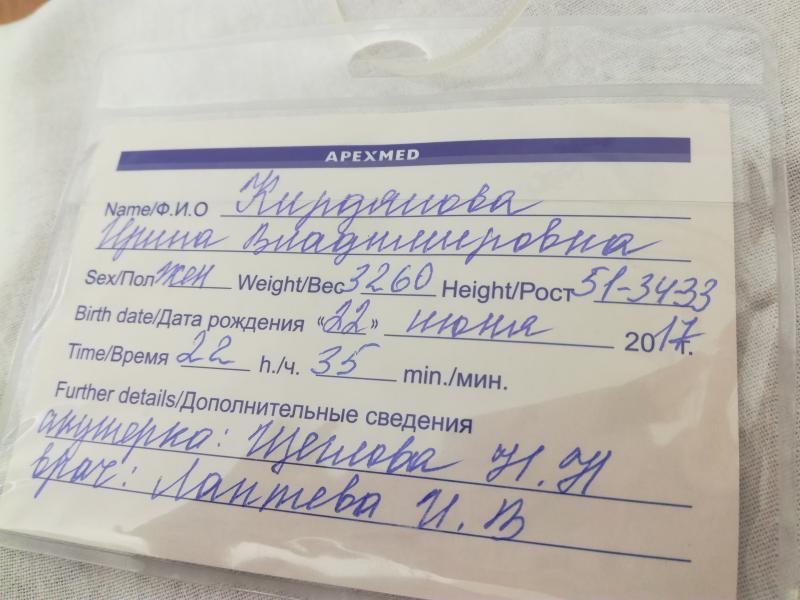 APEXMED
Name/Ф.И.О Кирдянова
Ирина Владимировна
Sex/Пол жен Weight/Вес 3260 Height/Рост 51-34-33
Birth date/Дата рождения «22» июня 2017г.
Time/Время 22 h./ч. 35 min./мин.
Further details/Дополнительные сведения
акушерка: Щеглова Н.Н
врач: Лаптева И.В